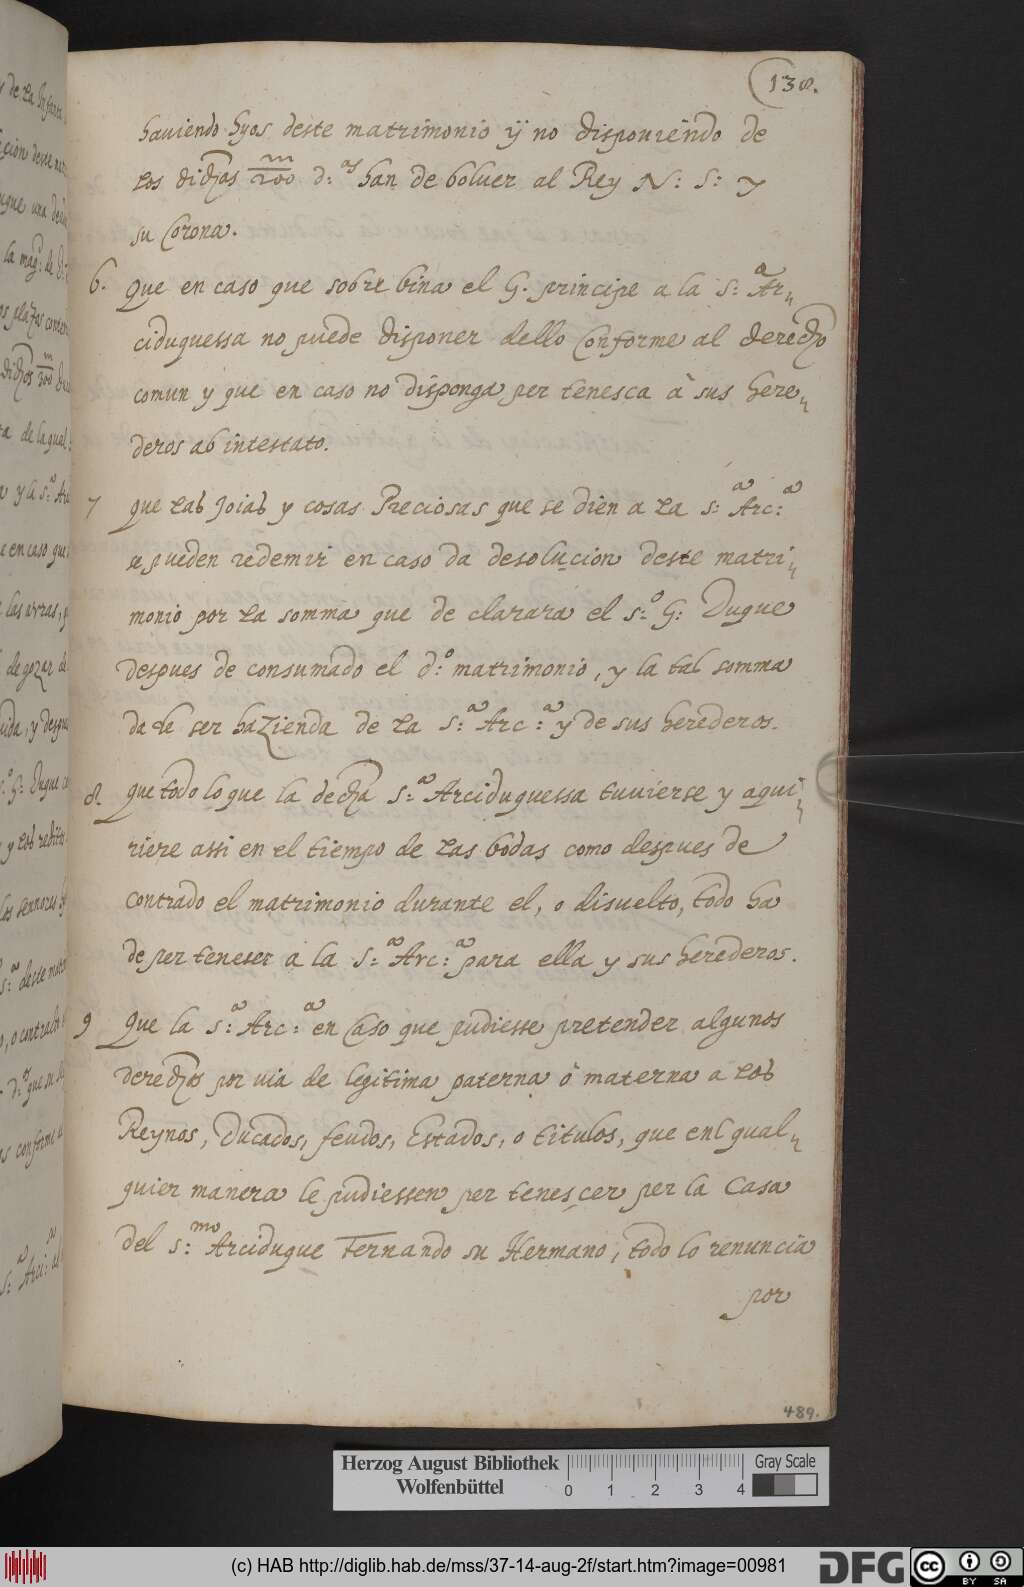 138.
haviendo hyos deste matrimonio ÿ no disponiendo de
los dichos 200 m d:os han de bolver al Rey N: S: y
su Corona.
6. Que en caso que sobre bina el G. principe a la S:a Ar„
ciduquessa no puede disponer dello conforme al derecho
comun y que en caso no disponga per tenesca à sus here„
deros ab intestato.
7 que las Joias y cosas Preciosas que se dien a la S:a Arc:a
se pueden redemir en caso da desolucion deste matri„
monio por la somma que de clarara el S:o G: Duque
despues de consumado el d:o matrimonio, y la tal somma
da de ser hazienda de la S:a Arc:a y de sus herederos.
8. que todo lo que la decha S:a Arciduquessa tuvierse y aqui„
riere assi en el tiempo de las bodas como despues de
contrado el matrimonio durante el, o disuelto, todo ha
de per teneser a la S:a Arc:a para ella y sus herederos.
9 Que la S:a Arc:a en caso que pudiesse pretender algunos
derechos por via de legitima paterna ò materna a los
Reynos, Ducados, feudos, Estados, o titulos, que enl qual„
quier manera le pudiessen per tenescer per la Casa
del S:mo Arciduque Fernando su Hermano, todo lo renuncia
por
489.
Herzog August Bibliothek
Wolfenbüttel
0 1 2 3 4
Gray Scale
(c) HAB http://diglib.hab.de/mss/37-14-aug-2f/start.htm?image=00981
DFG
cc BY SA